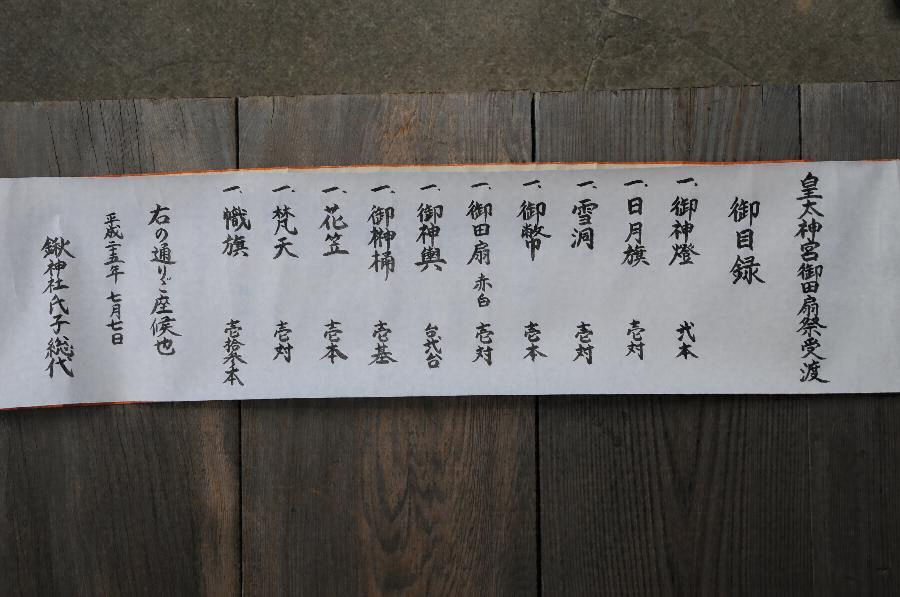 皇太神宮御田扇祭受渡
御目録
一、御神燈 弐本
一、日月旗 壱対
一、雪洞 壱対
一、御幣 壱本
一、御田扇 赤白 壱対
一、御神輿 台弐台
一、御榊桶 壱基
一、花笠 壱本
一、梵天 壱対
一、幟旗 壱拾参本
右の通りご座候也
平成二十五年 七月七日
鍬神社氏子総代